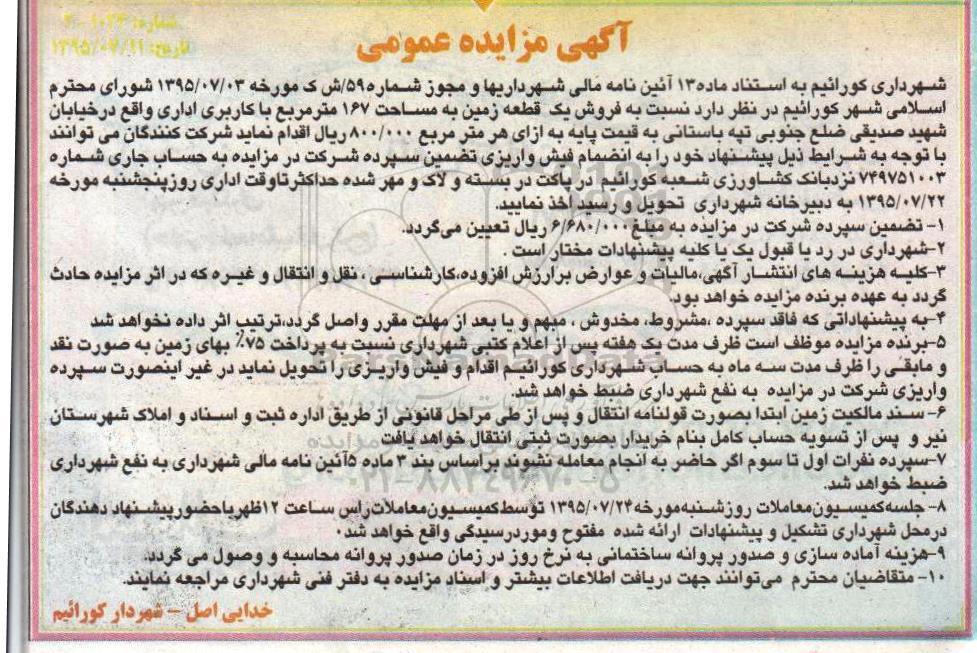 شماره: ۱۰۲۴-۲
تاریخ: ۱۳۹۵/۰۷/۱۱
آگهی مزایده عمومی
شهرداری کورائیم به استناد ماده۱۳ آئین نامه مالی شهرداریها و مجوز شماره۵۹/ش ک مورخه ۱۳۹۵/۰۷/۰۳ شورای محترم
اسلامی شهر کورائیم در نظر دارد نسبت به فروش یک قطعه زمین به مساحت ۱۶۷ مترمربع با کاربری اداری واقع درخیابان
شهید صدیقی ضلع جنوبی تپه باستانی به قیمت پایه به ازای هر متر مربع ۸۰۰/۰۰۰ ریال اقدام نماید شرکت کنندگان می توانند
با توجه به شرایط ذیل پیشنهاد خود را به انضمام فیش واریزی تضمین سپرده شرکت در مزایده به حساب جاری شماره
۷۴۹۷۵۱۰۰۳ نزدبانک کشاورزی شعبه کورائیم در پاکت در بسته و لاک و مهر شده حداکثرتاوقت اداری روزپنجشنبه مورخه
۱۳۹۵/۰۷/۲۲ به دبیرخانه شهرداری تحویل و رسید اخذ نمایید.
۱- تضمین سپرده شرکت در مزایده به مبلغ ۶/۶۸۰/۰۰۰ ریال تعیین می‌گردد.
۲-شهرداری در رد یا قبول یک یا کلیه پیشنهادات مختار است .
۳-کلیه هزینه های انتشار آگهی،مالیات و عوارض برارزش افزوده،کارشناسی ، نقل و انتقال و غیره که در اثر مزایده حادث
گردد به عهده برنده مزایده خواهد بود.
۴-به پیشنهاداتی که فاقد سپرده ،مشروط، مخدوش ، مبهم و یا بعد از مهلت مقرر واصل گردد،ترتیب اثر داده نخواهد شد
۵-برنده مزایده موظف است ظرف مدت یک هفته پس از اعلام کتبی شهرداری نسبت به پرداخت ۷۵٪ بهای زمین به صورت نقد
و مابقی را ظرف مدت سه ماه به حساب شهرداری کورائیم اقدام و فیش واریزی را تحویل نماید در غیر اینصورت سپرده
واریزی شرکت در مزایده به نفع شهرداری ضبط خواهد شد.
۶- سند مالکیت زمین ابتدا بصورت قولنامه انتقال و پس از طی مراحل قانونی از طریق اداره ثبت و اسناد و املاک شهرستان
نیر و پس از تسویه حساب کامل بنام خریدار بصورت ثبتی انتقال خواهد یافت
۷-سپرده نفرات اول تا سوم اگر حاضر به انجام معامله نشوند براساس بند ۳ ماده ۵آئین نامه مالی شهرداری به نفع شهرداری
ضبط خواهد شد.
۸- جلسه کمیسیون معاملات روزشنبه مورخه ۱۳۹۵/۰۷/۲۴ توسط کمیسیون معاملات راس ساعت ۱۲ظهر باحضور پیشنهاد دهندگان
درمحل شهرداری تشکیل و پیشنهادات ارائه شده مفتوح وموردرسیدگی واقع خواهد شد.
۹-هزینه آماده سازی و صدور پروانه ساختمانی به نرخ روز در زمان صدور پروانه محاسبه و وصول می گردد.
۱۰- متقاضیان محترم می‌توانند جهت دریافت اطلاعات بیشتر و اسناد مزایده به دفتر فنی شهرداری مراجعه نمایند.
خدایی اصل - شهردار کورائیم
ParsNamadData
۰۲۱-۸۸۳۴۹۶۷۰-۵